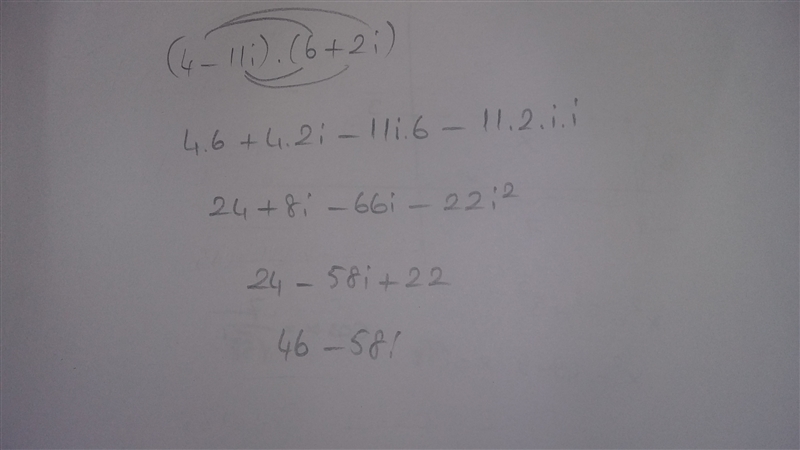 (4-11i).(6+2i)
4.6+4.2i-11i.6-11.2.i.i
24+8i-66i-22i²
24-58i+22
46-58i